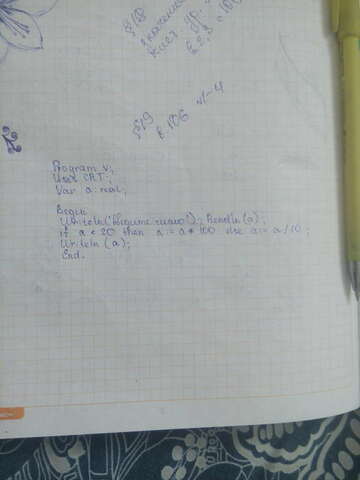 §18
§19
с. 106 №1-4
Program v;
Uses CRT;
Var a: real;
Begin
Writeln('Введите число'); Readln(a);
if a < 20 then a := a * 100 else a := a / 10;
Writeln (a);
End.